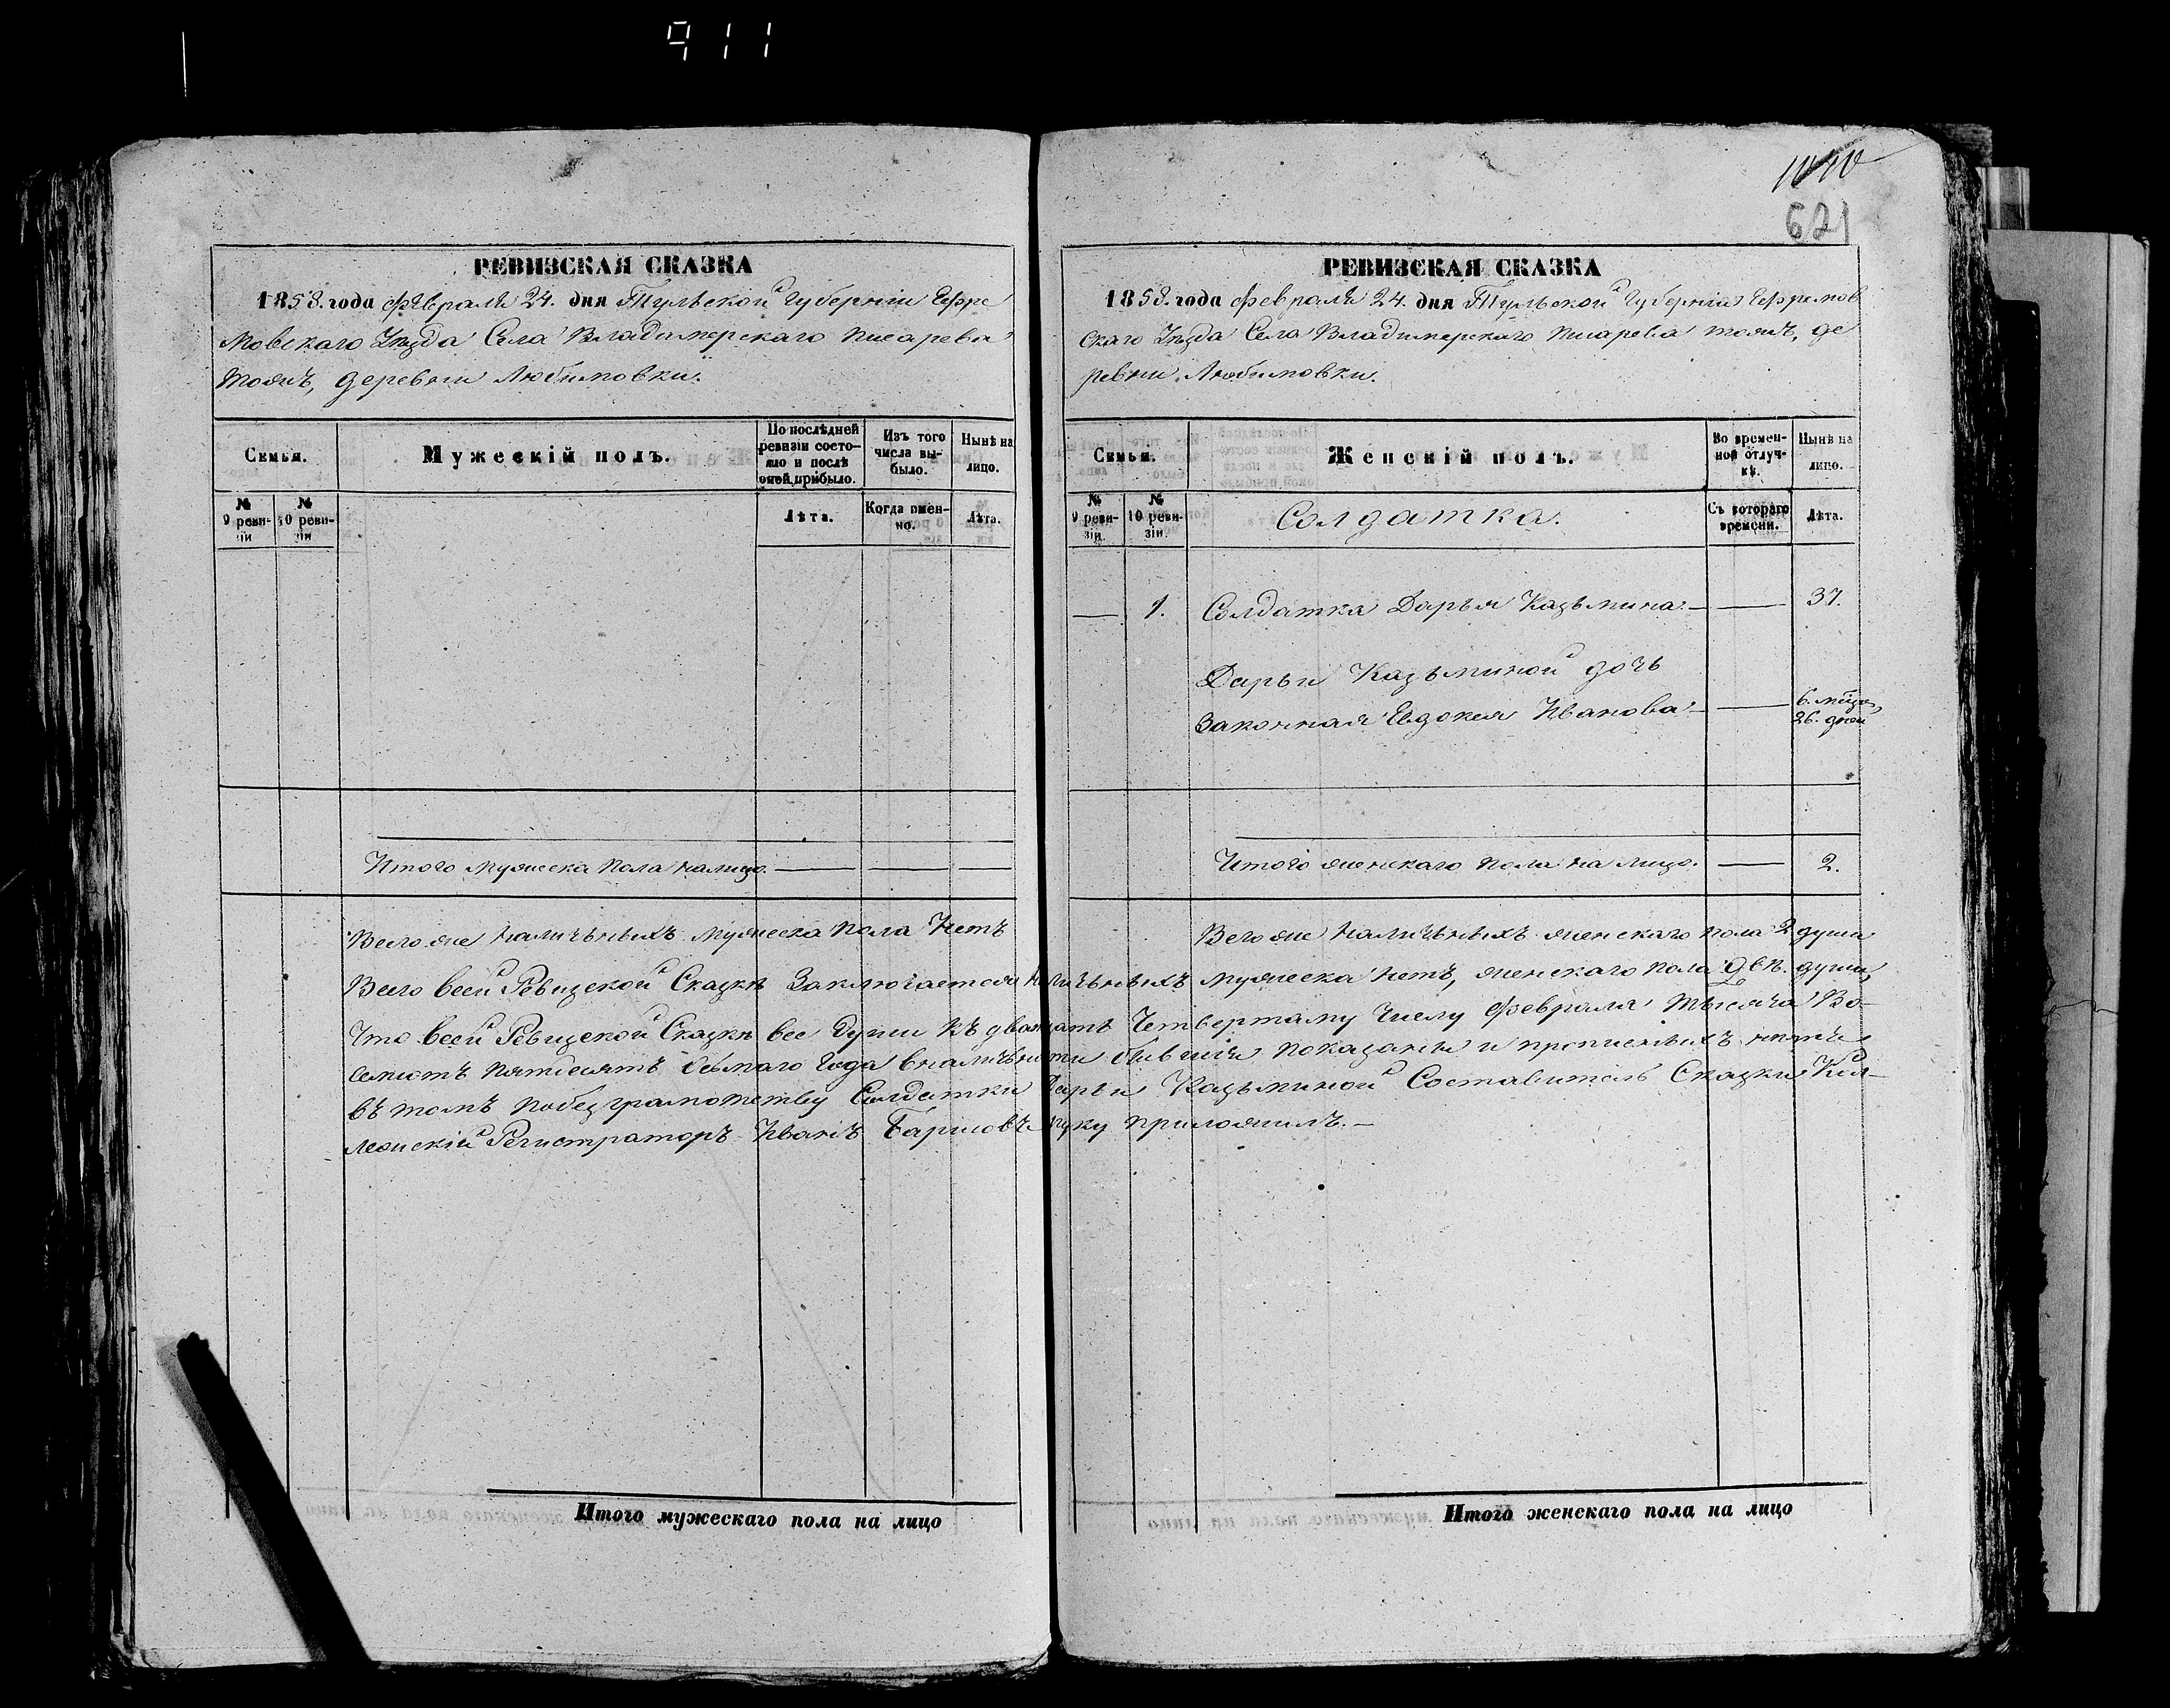 911
1010
621
РЕВИЗСКАЯ СКАЗКА
1858. года Февраля 24. дня Тульской Губерніи Ефре
мовскаго Уѣзда Села Владимерскаго Писарева
тожъ, деревни Любимовки.
Семьи.
Мужескій полъ.
По послѣдней ревизіи состояло и послѣ оной прибыло.
Изъ того числа выбыло.
Нынѣ на лицо.
№ 9 ревизіи
№ 10 ревизіи
Лѣта.
Когда именно.
Лѣта.
Итого мужеска пола налицо. — — —
Всего же наличныхъ мужеска пола Нетъ
РЕВИЗСКАЯ СКАЗКА
1858. года Февраля 24. дня Тульской Губерніи Ефремов
скаго Уѣзда Села Владимерскаго Писарева тожъ, де
ревни Любимовки.
Семьи.
Женскій полъ.
Во временной отлучкѣ.
Нынѣ на лицо.
№ 9 ревизіи.
№ 10 ревизіи.
Солдатка.
Съ котораго времени.
Лѣта.
— 1. Солдатка Дарья Казьмина — — 37.
Дарьи Казьминой дочь
Законная Евдокея Иванова — — 6. мѣсъ, 26. дней
Итого женскаго пола на лицо. — 2.
Всего же наличьныхъ женскаго пола 2 души
Всего всей Ревизской Сказкѣ Заключается наличьныхъ мужеска нетъ, женскаго пола двѣ. души,
Что всей Ревизской Сказкѣ все души къ дватцать Четвертому Числу Февраля Тысяча Во-
семсотъ пятдесятъ осьмаго Года вналичьности бывшія показаны и прописныхъ нетъ
въ томъ побезграмотству Солдатки Дарьи Казьминой Составитель Сказки Кол-
лежскій Регистраторъ Иванъ руку приложилъ. —
Итого мужескаго пола на лицо
Итого женскаго пола на лицо